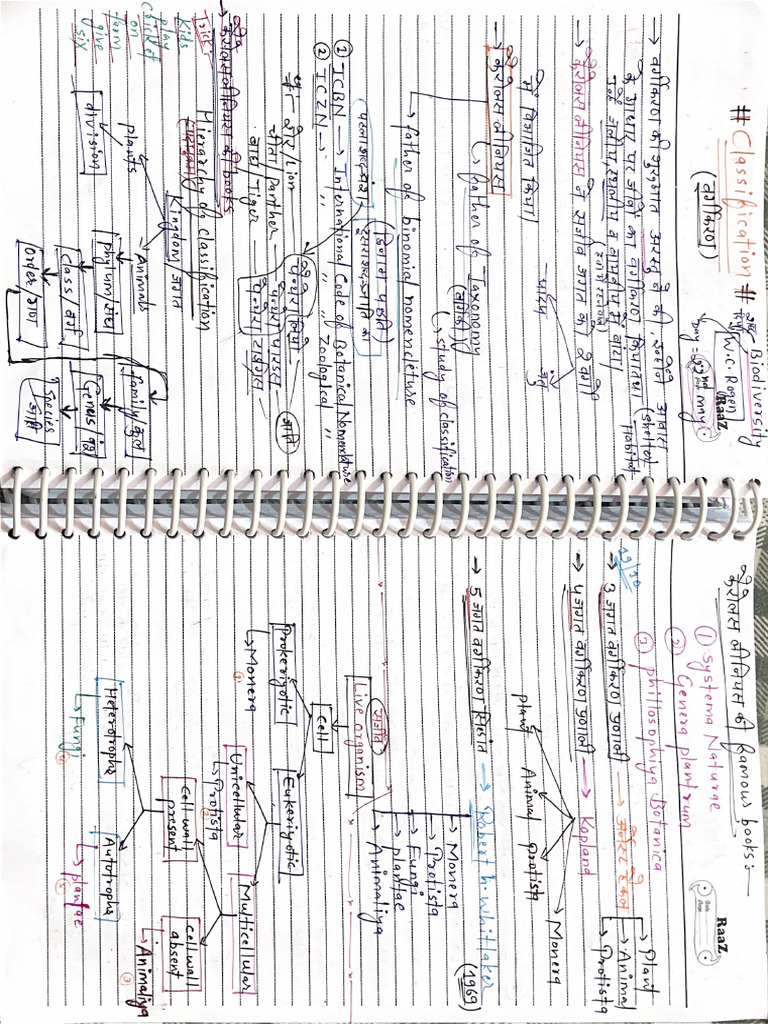 # Classification #
(वर्गीकरण)
Biodiversity
W.C. Rogen
Day = 22nd may
RaaZ
→ वर्गीकरण की शुरुआत अरस्तू ने की, उन्होंने आवास
(shelter
Habitat
के आधार पर जीवों का वर्गीकरण किया था।
→ कैरोलस लीनियस ने सजीव जगत को 2 वर्गों
में विभाजित किया
पादप
जंतु
→ कैरोलस लीनियस
father of Taxonomy
(वर्गिकी)
study of classification
→ father of binomial nomencleture
(द्विनाम पद्धति)
① ICBN → International Code of Botanical Nomenclature
② ICZN → " " " Zoological "
शेर / lion
चीता / Panther
बाघ / Tiger
जाति
Hierarchy of classification
Trick:
Kids
play
cricket
on
form
give
six
Kingdom / जगत
plants
Animals
division
phylum / संघ
class / वर्ग
order / गण
family / कुल
Genus / वंश
Species
जाति
कैरोलस लीनियस की famous books:—
① Systema Naturae
② Genera plantrum
③ phillosophiya Botanica
RaaZ
→ 3 जगत वर्गीकरण प्रणाली → अर्नेस्ट हैकल
Plant
Animal
Protista
→ 4 जगत वर्गीकरण प्रणाली → Kopland
plant
Animal
protista
Monera
→ 5 जगत वर्गीकरण सिद्धांत → Robert h. whittaker
(1969)
→ Monera
→ Protista
→ Fungi
→ plantae
→ Animaliya
सजीव
Live organism
Cell
Prokeriyotic
Eukeriyotic
→ Monera
①
Unicellular
Multicellular
→ Protista
②
cell wall
present
cell wall
absent
→ Animaliya
③
Heterotrophs
Autotrophs
→ Fungi
④
→ plantae
⑤